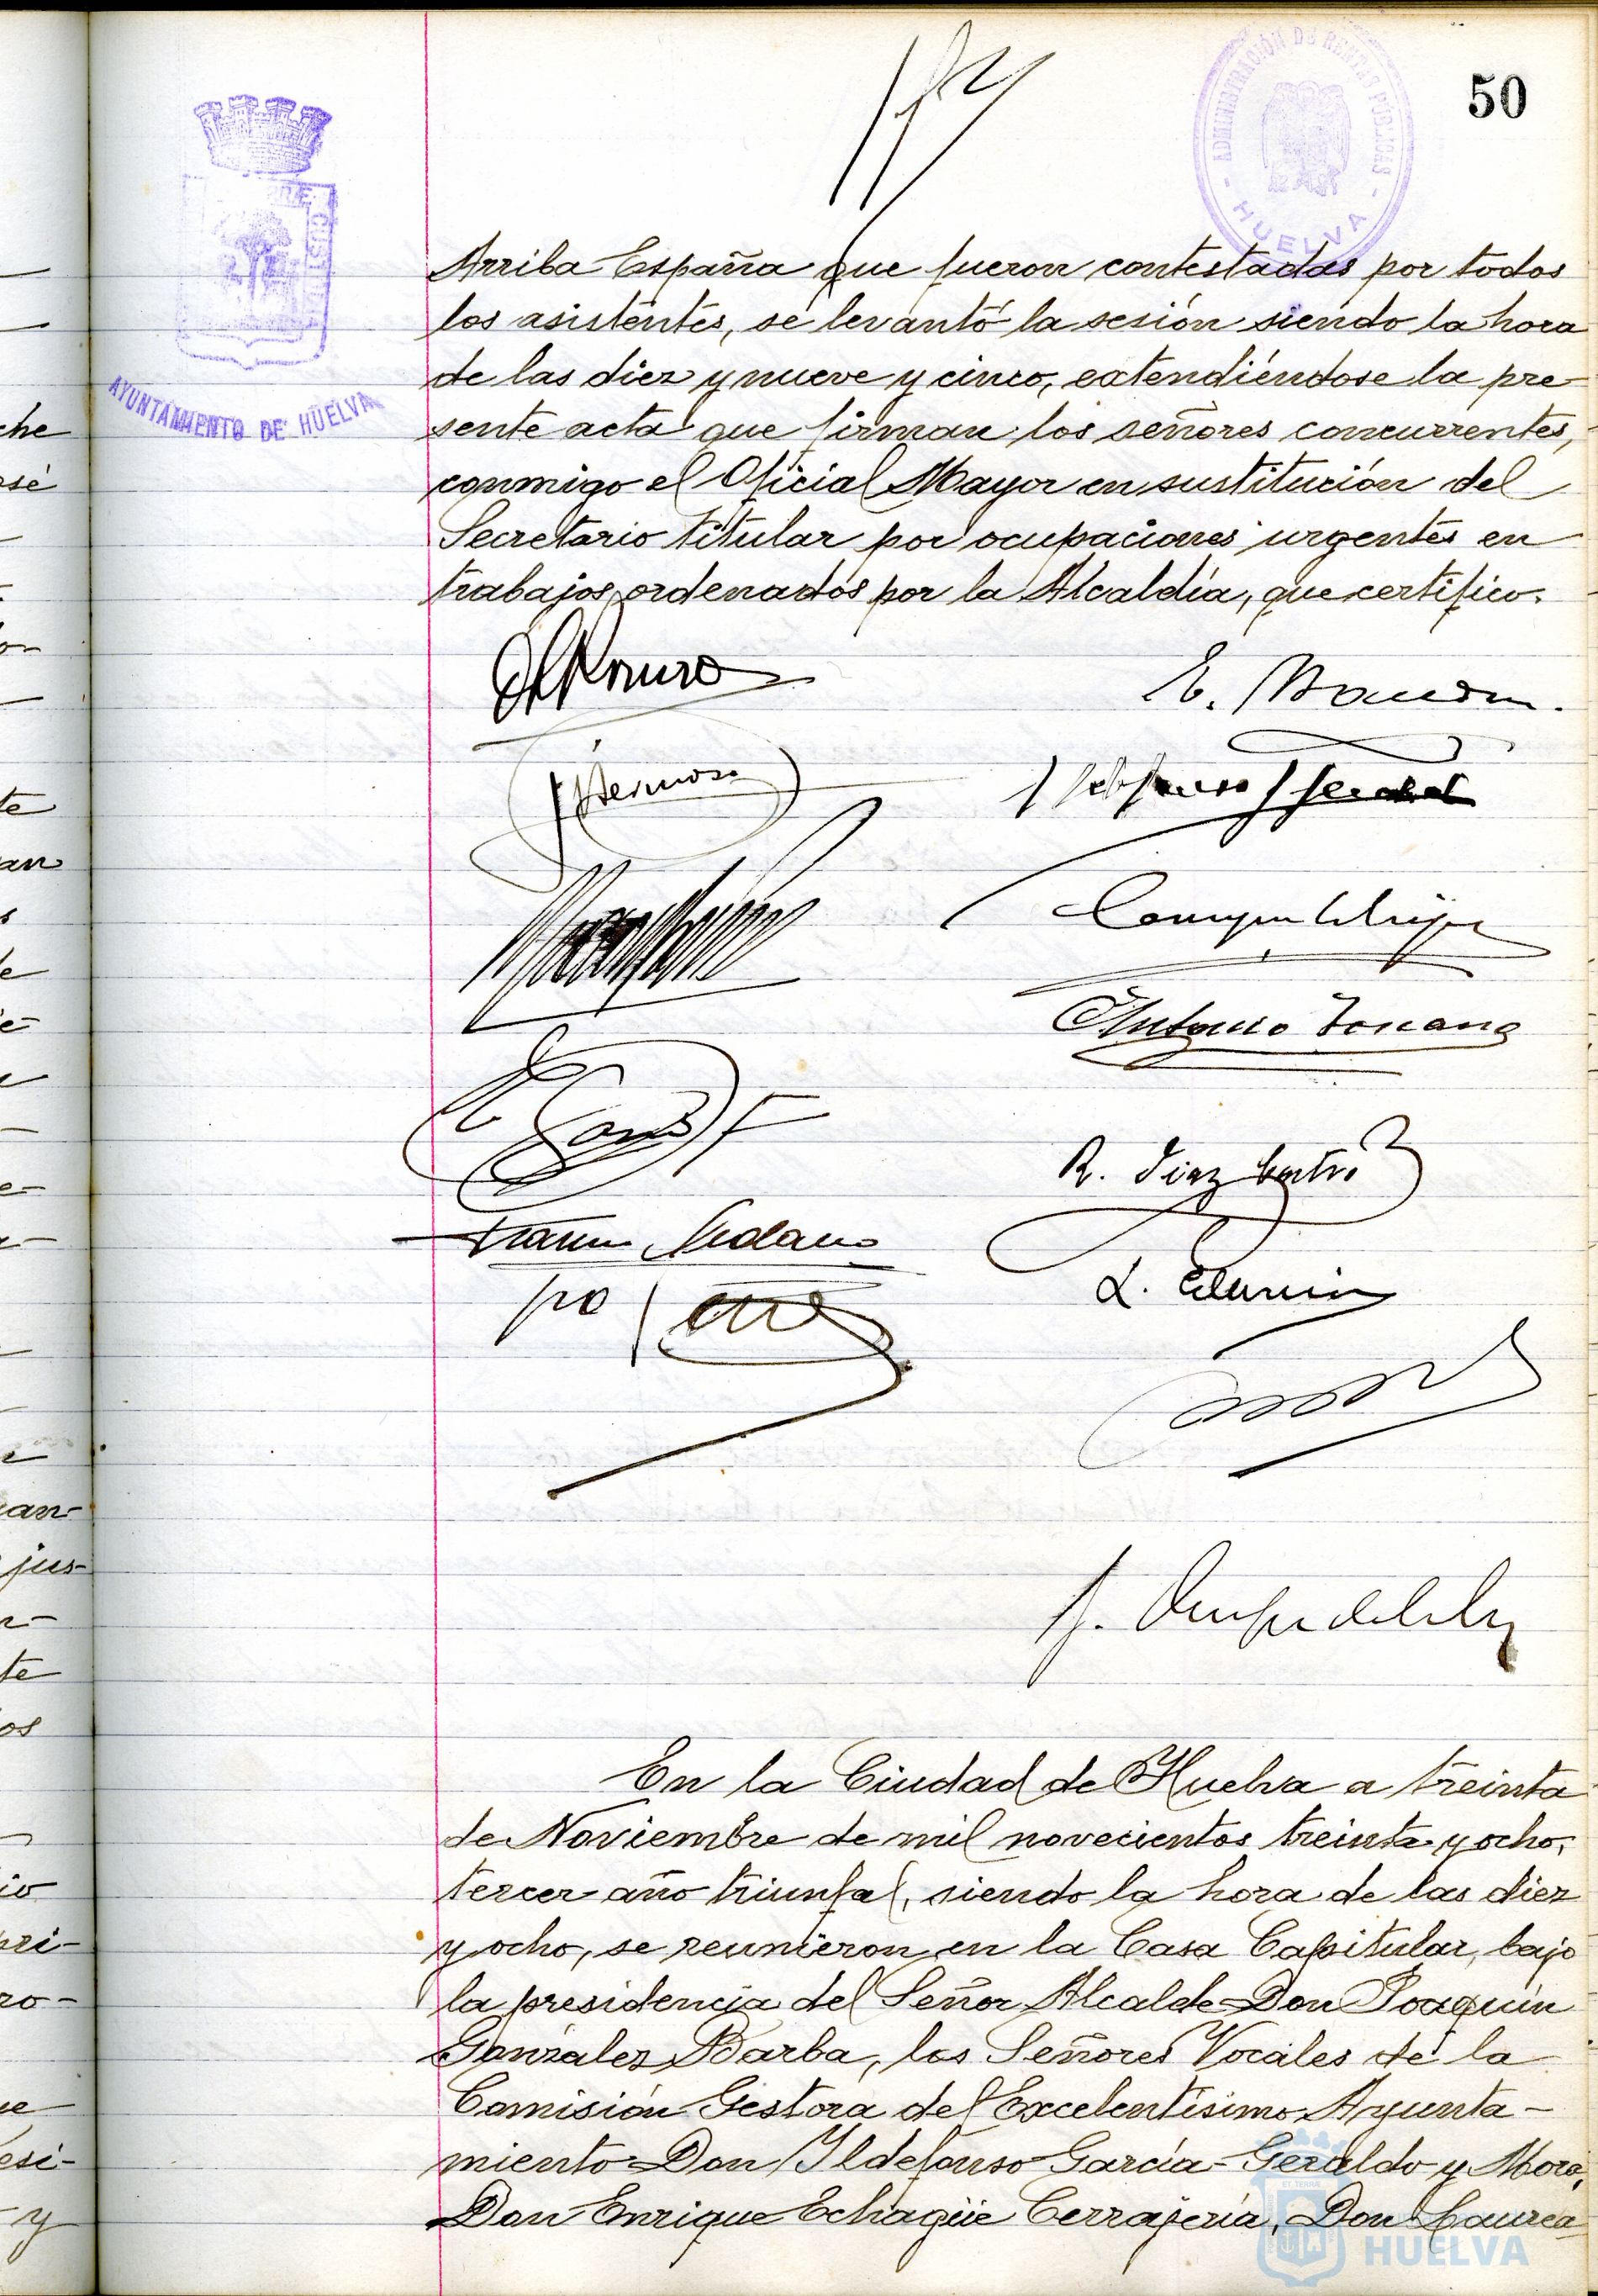 50
ADMINISTRACIÓN DE RENTAS PÚBLICAS
- HUELVA -
AYUNTAMIENTO DE HUELVA
Arriba España que fueron contestadas por todos
los asistentes, se levantó la sesión siendo la hora
de las diez y nueve y cinco, extendiéndose la pre-
sente acta que firman los señores concurrentes,
conmigo el Oficial Mayor en sustitución del
Secretario titular por ocupaciones urgentes en
trabajos ordenados por la Alcaldía, que certifico.
Romero
E.
J Hermoso
Ildefonso
Antonio Toscano
R. Diaz
po
L.
En la Ciudad de Huelva a treinta
de Noviembre de mil novecientos treinta y ocho,
tercer año triunfal, siendo la hora de las diez
y ocho, se reunieron en la Casa Capitular, bajo
la presidencia del Señor Alcalde Don Joaquín
González Barba, los Señores Vocales de la
Comisión Gestora del Excelentísimo Ayunta-
miento Don Ildefonso García-Geraldo y Mora,
Don Enrique Echagüe Cerrajería, Don Laurea
HUELVA
che
sé
te
an
s
de
an-
jus-
te
os
io
pri-
ro-
ue
esi-
y